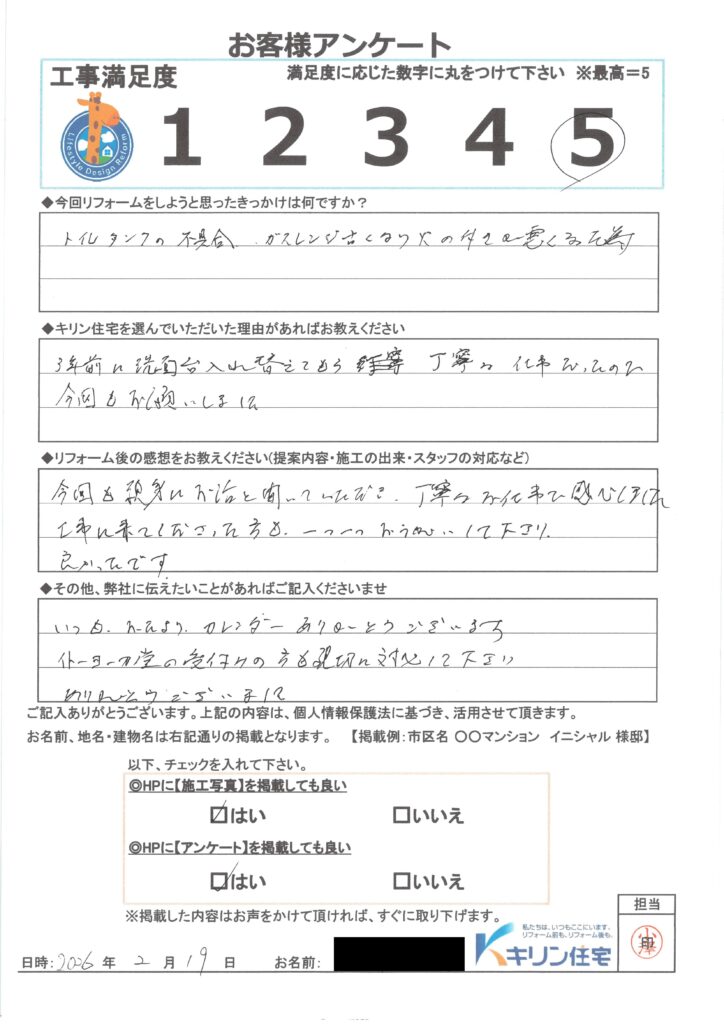 お客様アンケート
工事満足度
満足度に応じた数字に丸をつけて下さい ※最高=5
Lifestyle Design Reform
1 2 3 4 5
◆今回リフォームをしようと思ったきっかけは何ですか?
トイレタンクの不具合、ガスレンジ古くなり火の付きも悪くなる為
◆キリン住宅を選んでいただいた理由があればお教えください
3年前に洗面台入れ替えてもらう 丁寧な仕事だったので
今回もお願いしました
◆リフォーム後の感想をお教えください(提案内容・施工の出来・スタッフの対応など)
今回も親身にお話を聞いていただき、丁寧なお仕事で感心しました
工事に来てくださった方も、一つ一つ して下さり
良かったです
◆その他、弊社に伝えたいことがあればご記入くださいませ
いつも、おたより、カレンダーありがとうございます
イトーヨーカ堂の受付けの方も親切に対応して下さり
ありがとうございました
ご記入ありがとうございます。上記の内容は、個人情報保護法に基づき、活用させて頂きます。
お名前、地名・建物名は右記通りの掲載となります。 【掲載例:市区名 〇〇マンション イニシャル 様邸】
以下、チェックを入れて下さい。
◎HPに【施工写真】を掲載しても良い
☑はい □いいえ
◎HPに【アンケート】を掲載しても良い
☑はい □いいえ
※掲載した内容はお声をかけて頂ければ、すぐに取り下げます。
担当
私たちは、いつもここにいます。
リフォーム前も、リフォーム後も。
キリン住宅
日時:2026年 2月 19日 お名前: